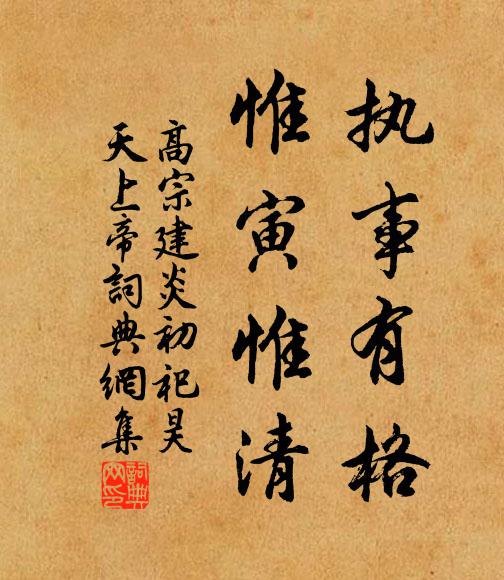 执事有格
惟寅惟清
高宗建炎初祀昊
天上帝詞典網集
詞典网印